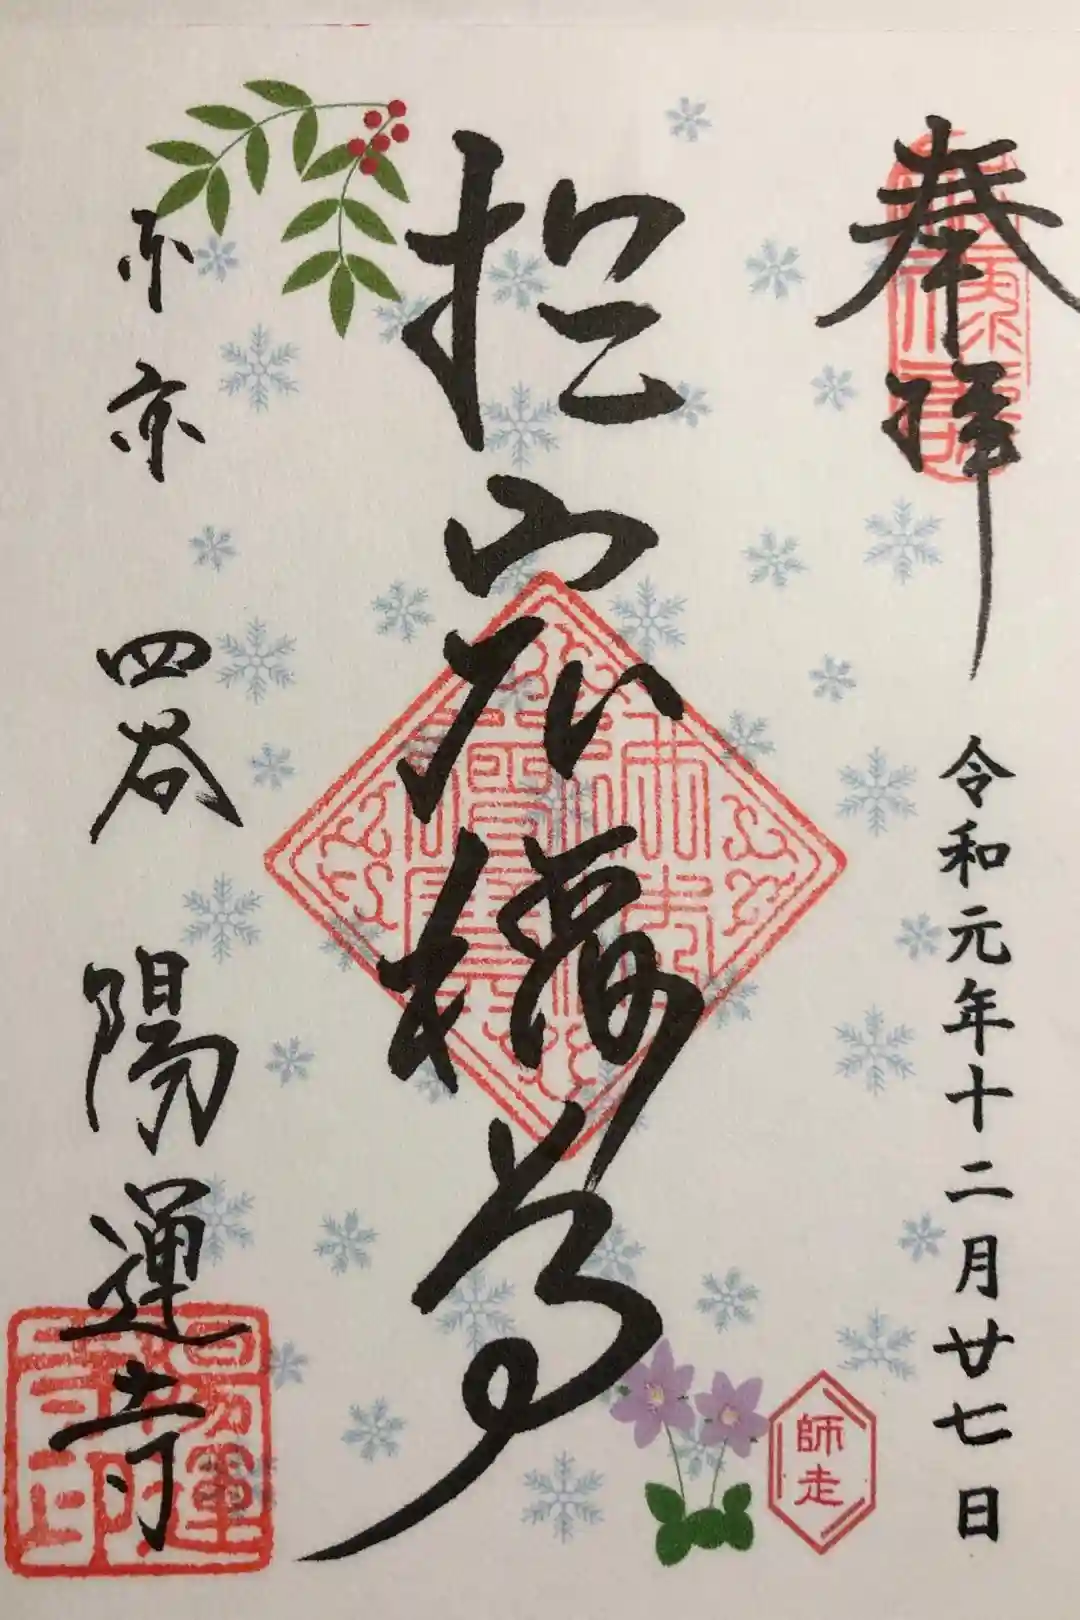 奉拝
令和元年十二月廿七日
於岩稲荷
東京 四谷 陽運寺
陽運寺印
師走